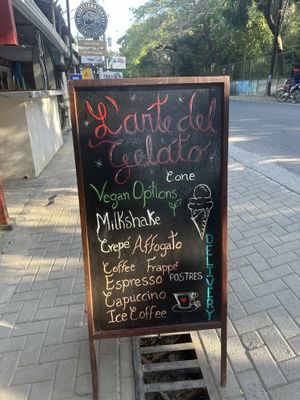 L'arte del
Gelato
Cone
Vegan Options
Milkshake
Crepé Affogato
Coffee Frappé
Espresso POSTRES
Capuccino
Ice Coffee
DELIVERY